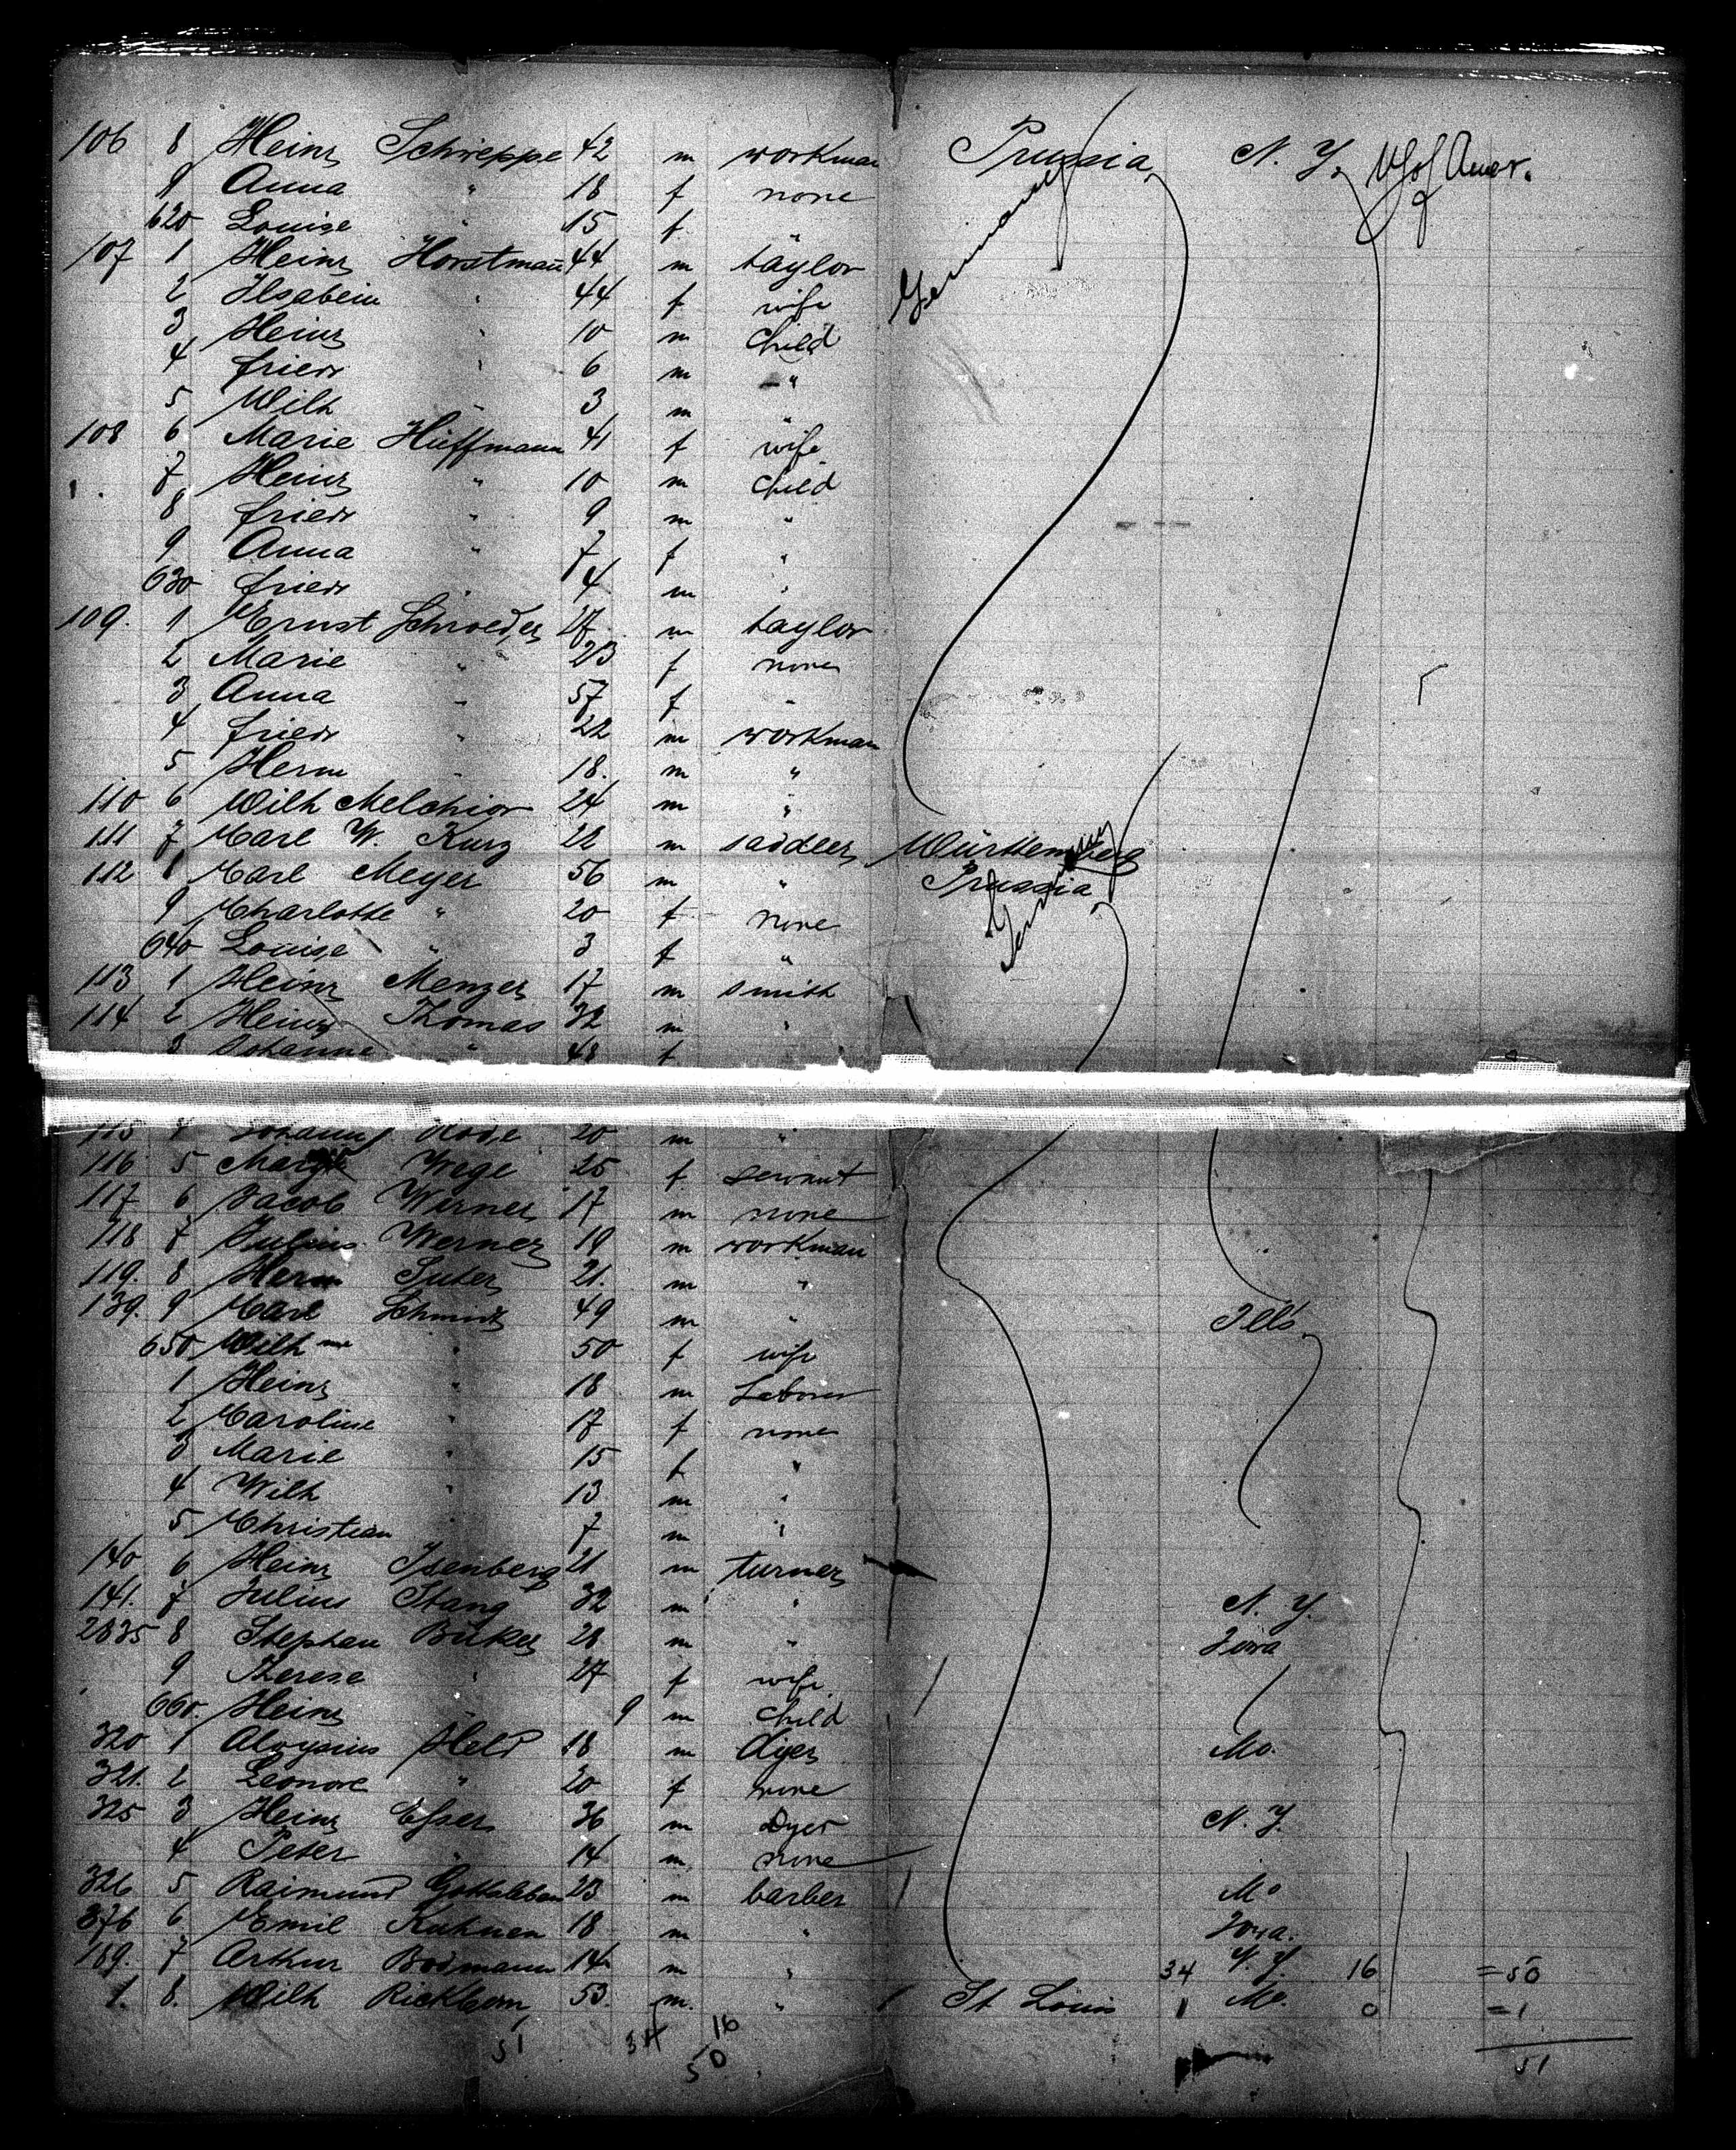 106 8 Heinr Schweppe 42 m workman Prussia N. Y. U S of Amer.
9 Anna " 18 f none Germany
620 Louise " 15 f "
107 1 Heinr Horstmañ 44 m taylor
2 Ilsabein " 44 f wife
3 Heinr " 10 m Child
4 friedr " 6 m "
5 Wilh " 3 m "
108 6 Marie Hüffmann 41 f wife
7 Heinr " 10 m Child
8 friedr " 9 m "
9 Anna " 7 f "
630 friedr " 4 m "
109. 1 Ernst Schroeder 27 m taylor
2 Marie " 23 f none
3 Anna " 57 f "
4 friedr " 22 m workman
5 Herm " 18. m "
110 6 Wilh Melchior 24 m "
111 7 Carl W. Kurz 22 m saddler Württemberg
112 8 Carl Meyer 56 m " Prussia Germany
9 Charlotte " 20 f none
640 Louise " 3 f "
113 1 Heinr Menzer 17 m smith
114 2 Heinr Thomas 32 m "
3 Johanne " 48 f
115 4 Johann Rode 20 m "
116 5 Wege 25 f servant
117 6 Jacob Werner 17 m none
118 7 Julius Werner 19 m workman
119. 8 Herm Suter 21. m "
139. 9 Carl Schmidt 49 m " Ills.
650 Wilh me " 50 f wife
1 Heinr " 18 m Laborer
2 Caroline " 17 f none
3 Marie " 15 f "
4 Wilh " 13 m "
5 Christian 7 m "
140 6 Heinr Isenberg 21 m turner
141. 7 Julius Stang 32 m " N. Y.
2835 8 Stephan Büker 28 m " Iowa
9 Therese " 27 f wife
660. Heinr 9 m Child
320 1 Aloysius Held 18 m dyer Mo.
321. 2 Leonore " 20 f none
325 3 Heinr Esser 36 m Dyer N. Y.
4 Peter " 14 m none
326 5 Raimund Gottsleben 23 m barber Mo
376 6 Emil Kuhnen 18 m " Iowa.
189. 7 Arthur Bodmann 14 m " 34 N. Y. 16 = 50
1. 8. Wilh Rickhern 53 m. " St Louis 1 Mo. 0 = 1
51 34 16 50 51